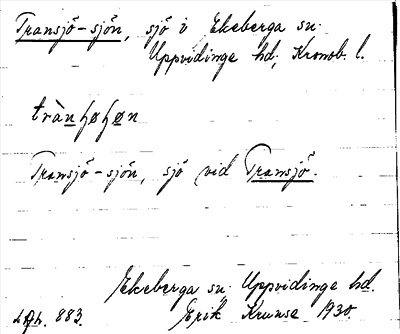 Transjö-sjön, sjö i Ekeberga sn.
Uppvidinge hd, Kronob. l.
Transjö-sjön, sjö vid Transjö.
Ekeberga sn. Uppvidinge hd.
883. Erik Krunse 1930.